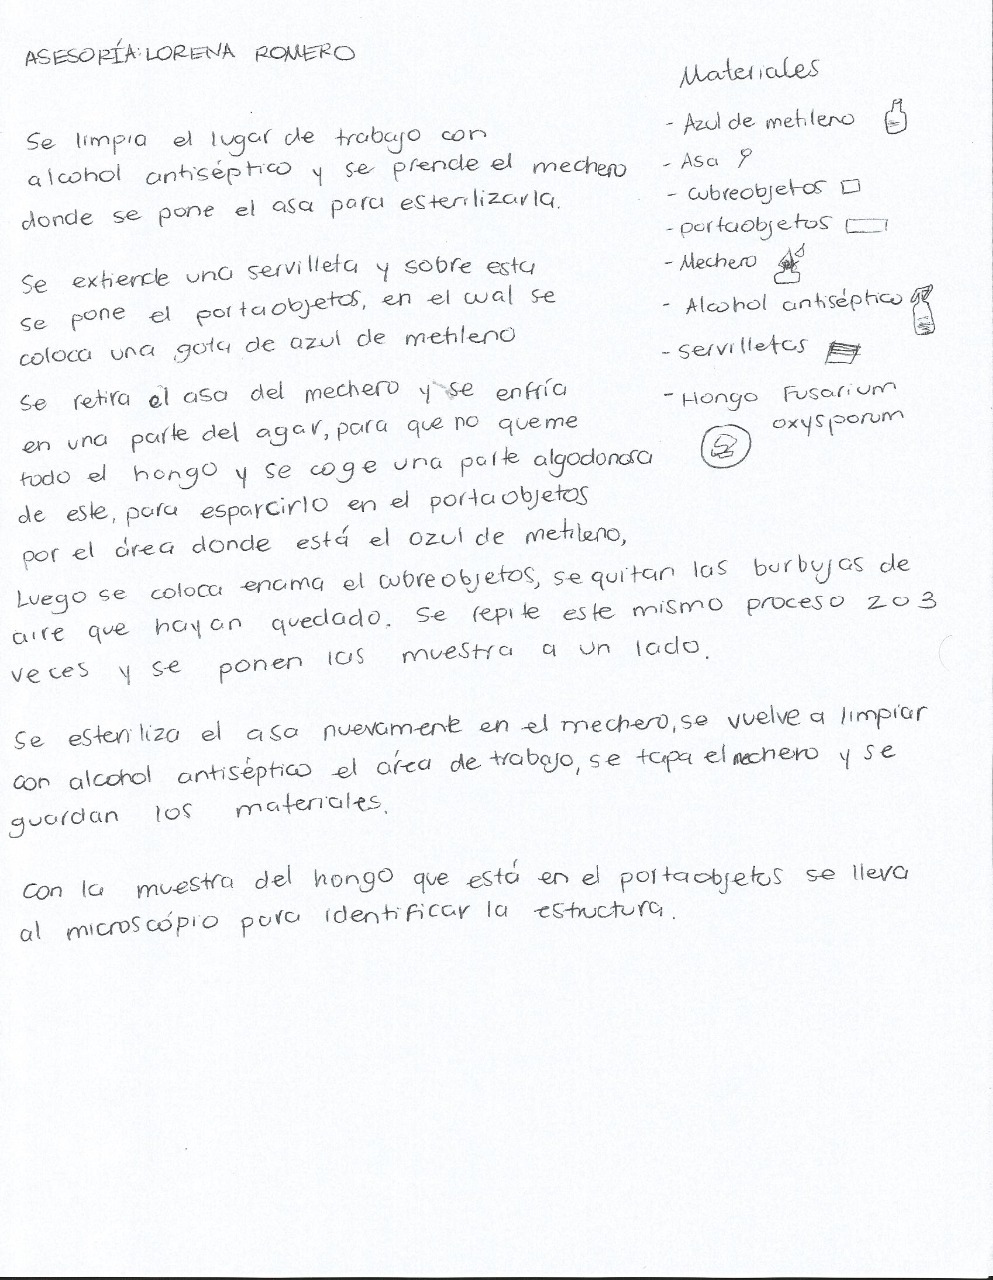 ASESORÍA: LORENA ROMERO
Se limpia el lugar de trabajo con
alcohol antiséptico y se prende el mechero
donde se pone el asa para esterilizarla.
Se extiende una servilleta y sobre esta
se pone el portaobjetos, en el cual se
coloca una gota de azul de metileno
Se retira el asa del mechero y se enfría
en una parte del agar, para que no queme
todo el hongo y se coge una parte algodonosa
de este, para esparcirlo en el portaobjetos
por el área donde está el azul de metileno,
Luego se coloca encima el cubreobjetos, se quitan las burbujas de
aire que hayan quedado. Se repite este mismo proceso 2 o 3
veces y se ponen las muestra a un lado.
Se esteriliza el asa nuevamente en el mechero, se vuelve a limpiar
con alcohol antiséptico el área de trabajo, se tapa el mechero y se
guardan los materiales.
Con la muestra del hongo que está en el portaobjetos se lleva
al microscópio para identificar la estructura.
Materiales
- Azul de metileno
- Asa
- cubreobjetos
- portaobjetos
- Mechero
- Alcohol antiséptico
- servilletas
- Hongo Fusarium
oxysporum